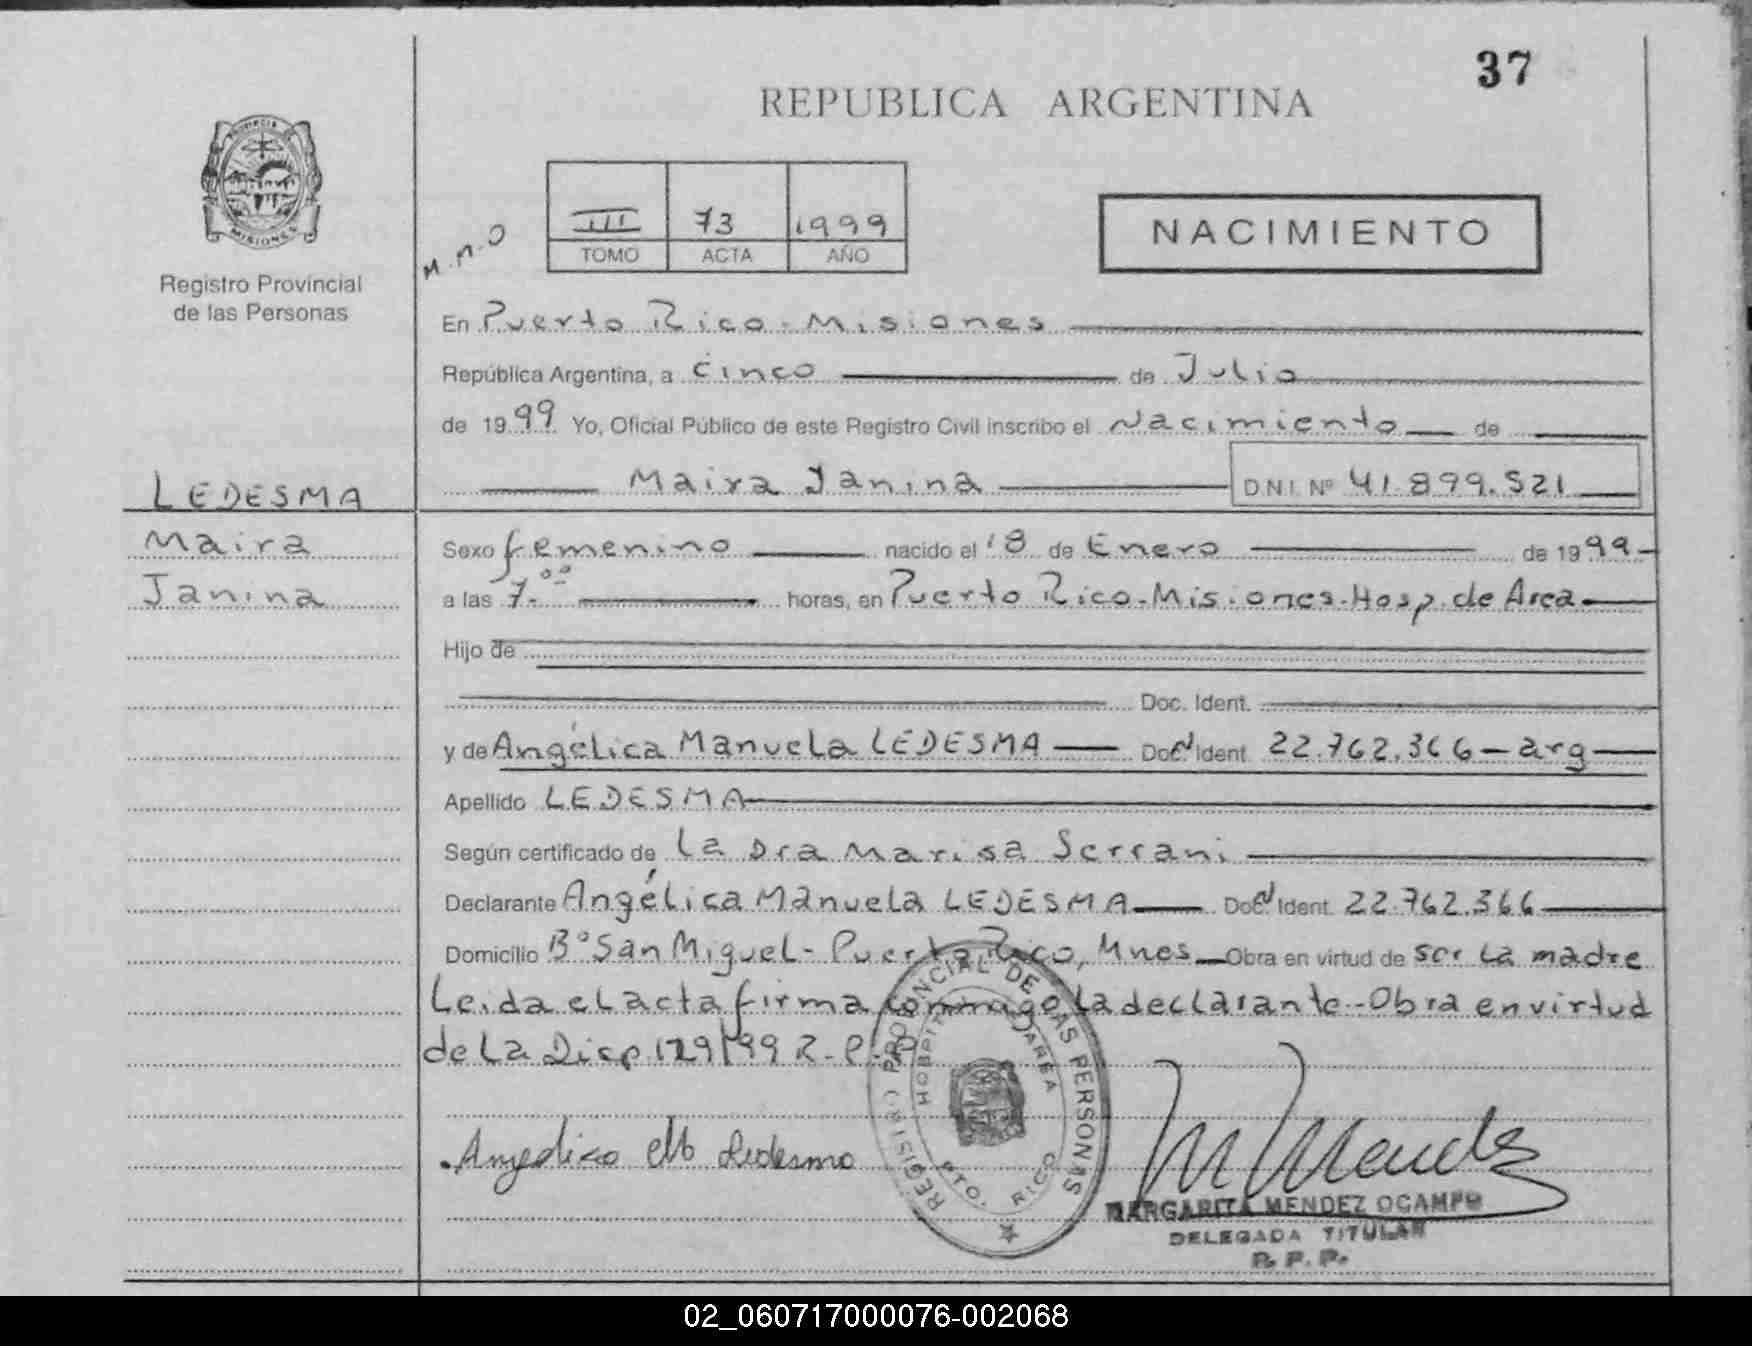 37
REPUBLICA ARGENTINA
PROVINCIA DE
MISIONES
Registro Provincial
de las Personas
M.M.O
III 73 1999
TOMO ACTA AÑO
NACIMIENTO
En Puerto Rico - Misiones
República Argentina, a cinco de Julio
de 1999 Yo, Oficial Público de este Registro Civil inscribo el Nacimiento de
LEDESMA Maira Janina D.N.I. Nº 41.899.521
Maira Sexo femenino nacido el 18 de Enero de 1999
Janina a las 7.00 horas, en Puerto Rico - Misiones - Hosp. de Area
Hijo de
Doc. Ident.
y de Angélica Manuela LEDESMA Doc. Ident. 22.762.366 - arg
Apellido LEDESMA
Según certificado de La Dra Marisa Serrani
Declarante Angélica Manuela LEDESMA Doc. Ident. 22.762.366
Domicilio Bº San Miguel - Puerto Rico, Mnes Obra en virtud de ser La madre
Leida el acta firma conmigo La declarante - Obra en virtud
de La Disp. 129/99 R.P.P
REGISTRO PROVINCIAL DE LAS PERSONAS
HOSPITAL DE AREA
PTO. RICO
Angelica M Ledesma
M Mendez
MARGARITA MENDEZ OCAMPO
DELEGADA TITULAR
R. P. P.
02_060717000076-002068